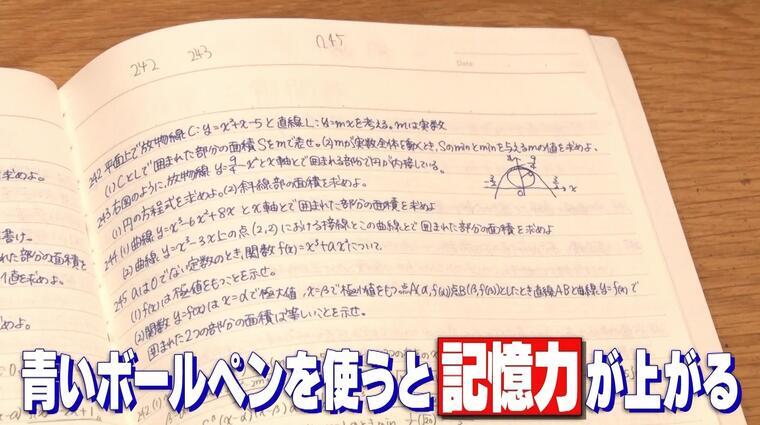 242 243 245
Date
242 平面上で放物線C:y=x²+x-5と直線L:y=mxを考える。mは実数
(1)CとLで囲まれた部分の面積Sをmで表せ。(2)mが実数全体を動くとき、Sのminとminを与えるmの値を求めよ。
243 右図のように、放物線y=9/4-x²とx軸とで囲まれる部分で円が内接している。
(1)円の方程式を求めよ。(2)斜線部の面積を求めよ。
244 (1)曲線y=x³-6x²+8xとx軸とで囲まれた部分の面積を求めよ
(2)曲線y=x³-3x上の点(2,2)における接線とこの曲線とで囲まれた部分の面積を求めよ
245 aは0でない定数のとき、関数f(x)=x³+ax²について、
(1)f(x)は極値をもつことを示せ。
(2)関数y=f(x)はx=αで極大値,x=βで極小値をもつ。点A(α,f(α))点B(β,f(β))としたとき直線ABと曲線y=f(x)で
囲まれた2つの部分の面積は等しいことを示せ。
求めよ。
書け。
れた部分の面積を
値を求めよ。
めよ。
青いボールペンを使うと記憶力が上がる